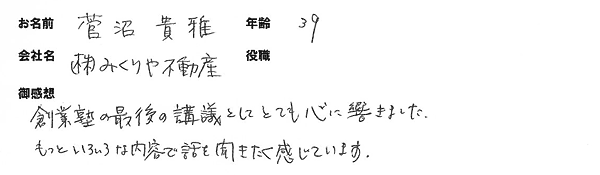 お名前 菅沼 貴雅 年齢 39
会社名 (株)みくりや不動産 役職
御感想
創業塾の最後の講議としてとても心に響きました.
もっといろいろな内容で話を聞きたく感じています.